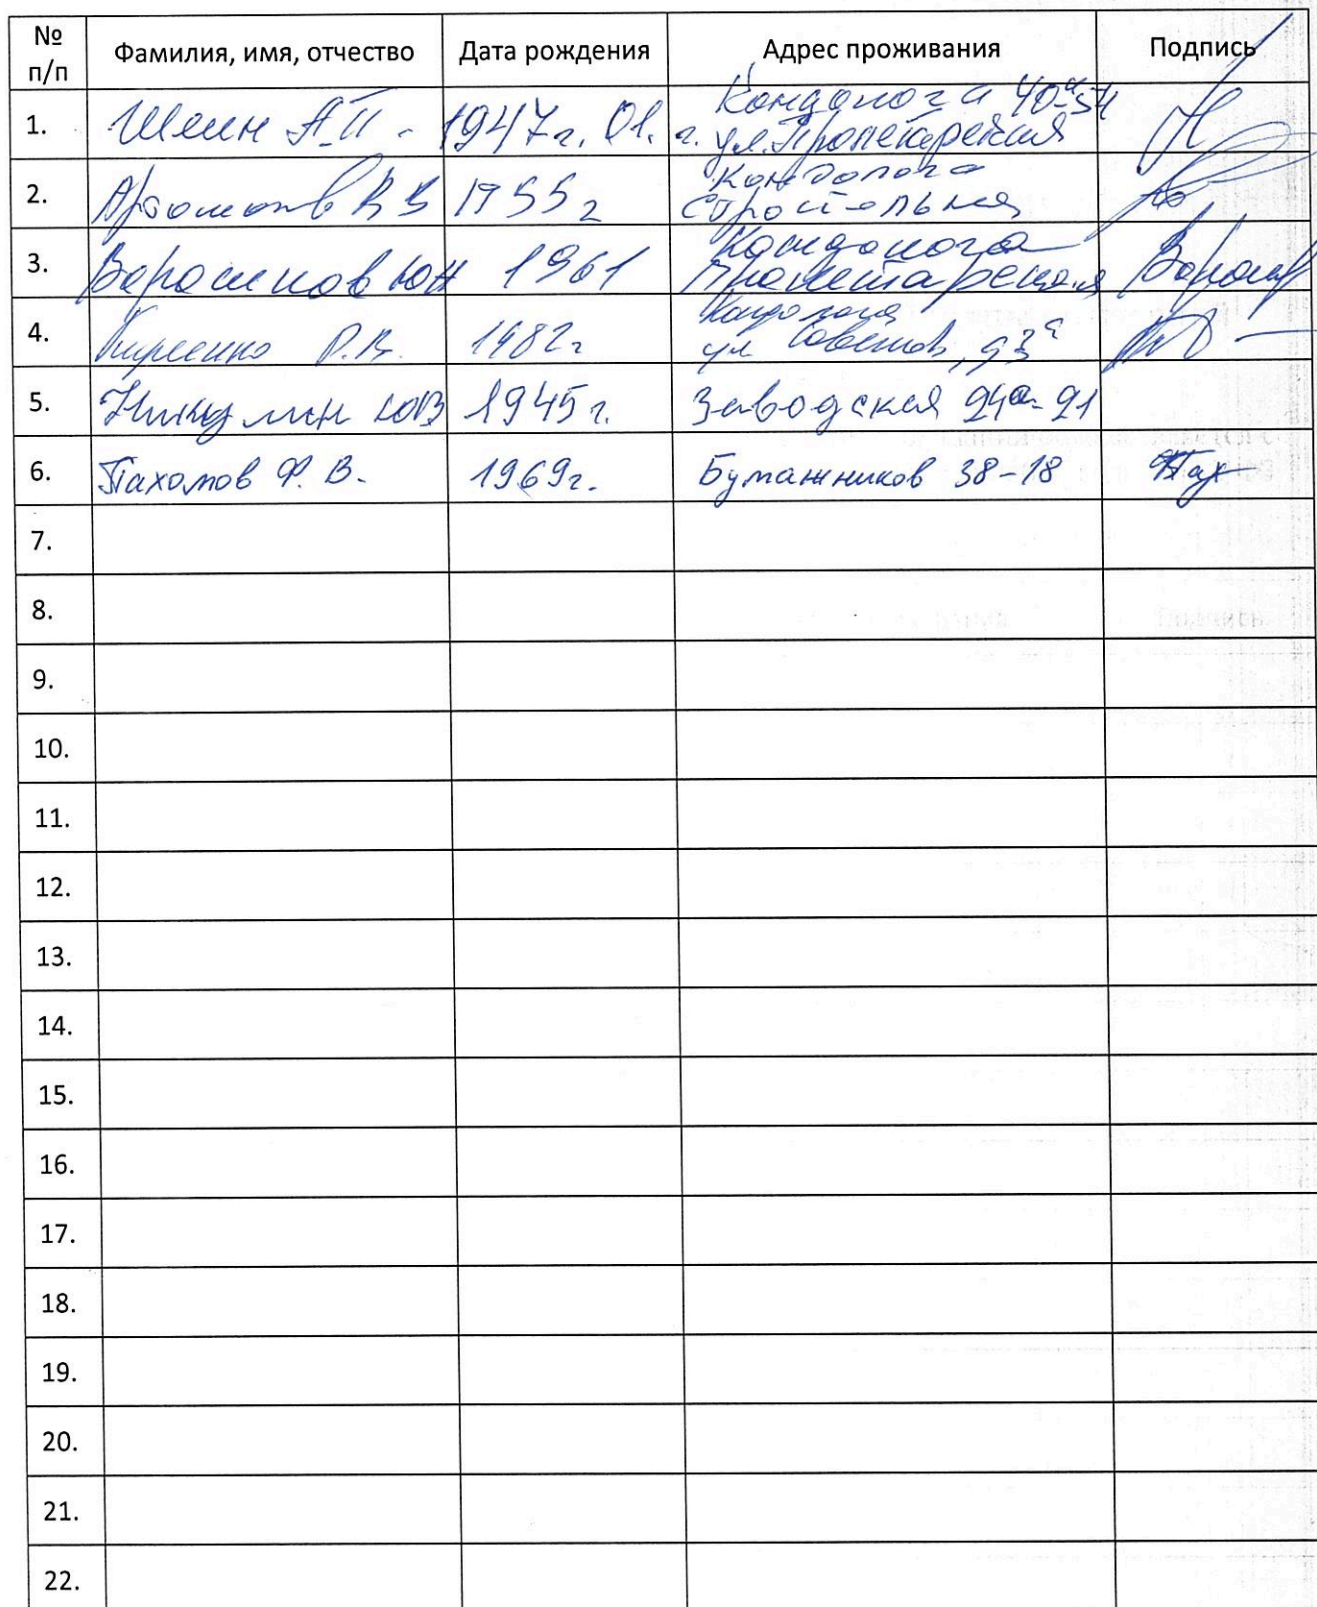 № п/п Фамилия, имя, отчество Дата рождения Адрес проживания Подпись
1. Шеин А.П. 1947г. 01. Кондопога 40а-54
г. ул. Пролетарская
2. В В 1955г Кондопога
Строительная
3. ЮН 1961 Кондопога
Пролетарская
4. Р.В. 1982г Кондопога
ул Советов, 93а
5. ЮВ 1945г. Заводская 24а-91
6. Пахомов Ф. В. 1969г. Бумажников 38-18 Пах
7.
8.
9.
10.
11.
12.
13.
14.
15.
16.
17.
18.
19.
20.
21.
22.